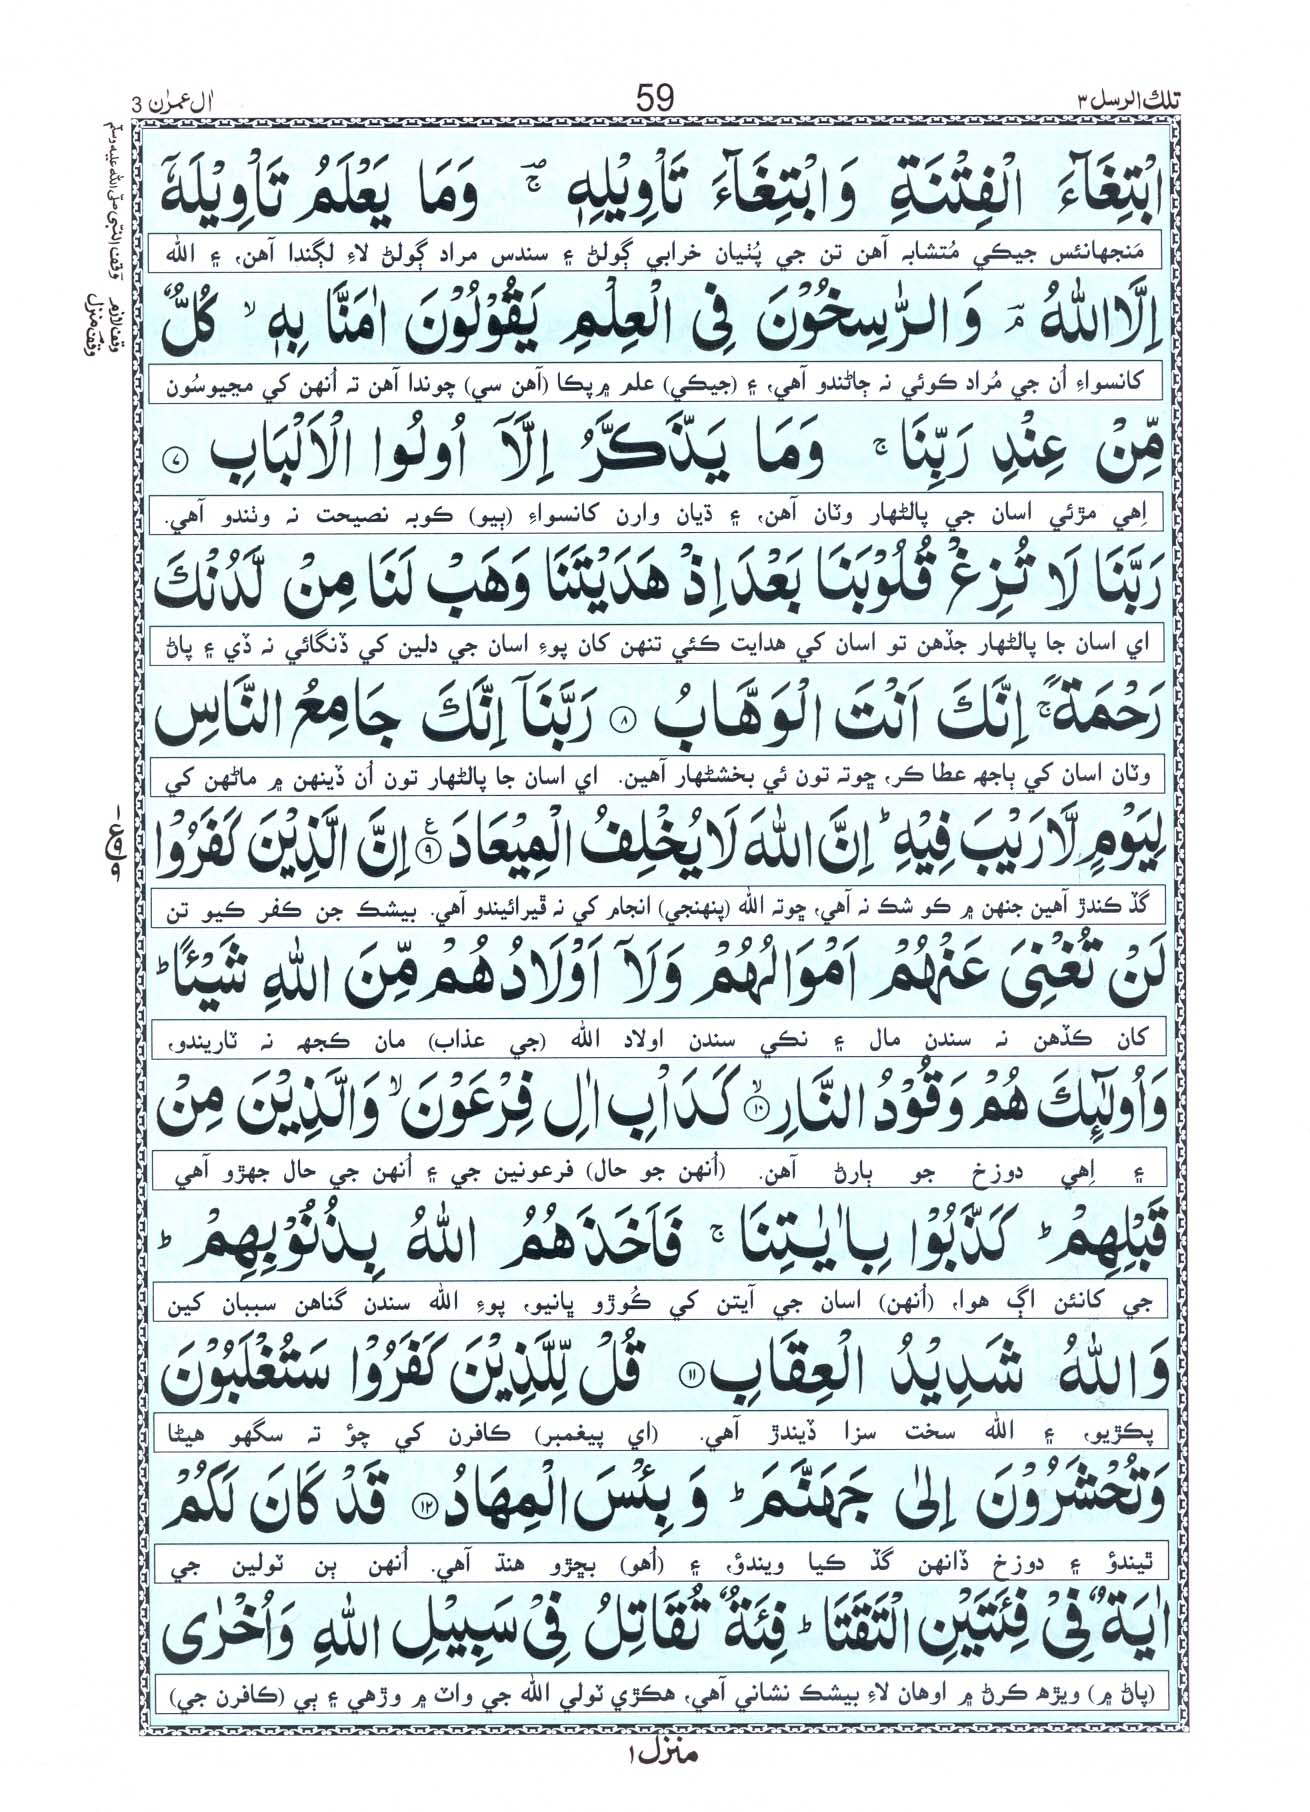 تلك الرسل ٣
59
اٰل عمرٰن 3
ابْتِغَآءَ الْفِتْنَةِ وَابْتِغَآءَ تَاْوِيْلِهٖ ۚ وَمَا يَعْلَمُ تَاْوِيْلَهٗٓ
مَنجهانئس جيڪي مُتشابہ آهن تن جي پُٺيان خرابي ڳولڻ ۽ سندس مراد ڳولڻ لاءِ لڳندا آهن، ۽ الله
اِلَّا اللّٰهُ ۘ وَالرّٰسِخُوْنَ فِى الْعِلْمِ يَقُوْلُوْنَ اٰمَنَّا بِهٖ ۙ كُلٌّ
کانسواءِ اُن جي مُراد ڪوئي نہ ڄاڻندو آهي، ۽ (جيڪي) علم ۾پڪا (آهن سي) چوندا آهن تہ اُنهن کي مڃيوسُون
مِّنْ عِنْدِ رَبِّنَا ۚ وَمَا يَذَّكَّرُ اِلَّآ اُولُوا الْاَلْبَابِ ٧
اِهي مڙئي اسان جي پالڻهار وٽان آهن، ۽ ڌيان وارن کانسواءِ (ٻيو) ڪوبہ نصيحت نہ وٺندو آهي.
رَبَّنَا لَا تُزِغْ قُلُوْبَنَا بَعْدَ اِذْ هَدَيْتَنَا وَهَبْ لَنَا مِنْ لَّدُنْكَ
اي اسان جا پالڻهار جڏهن تو اسان کي هدايت ڪئي تنهن کان پوءِ اسان جي دلين کي ڏنگائي نہ ڏي ۽ پاڻ
رَحْمَةً ۚ اِنَّكَ اَنْتَ الْوَهَّابُ ٨ رَبَّنَآ اِنَّكَ جَامِعُ النَّاسِ
وٽان اسان کي ٻاجهہ عطا ڪر، ڇوتہ تون ئي بخشڻهار آهين. اي اسان جا پالڻهار تون اُن ڏينهن ۾ ماڻهن کي
لِيَوْمٍ لَّا رَيْبَ فِيْهِ ؕ اِنَّ اللّٰهَ لَا يُخْلِفُ الْمِيْعَادَ ٩ اِنَّ الَّذِيْنَ كَفَرُوْا
گڏ ڪندڙ آهين جنهن ۾ ڪو شڪ نہ آهي، ڇوتہ الله (پنهنجي) انجام کي نہ ڦيرائيندو آهي. بيشڪ جن ڪفر ڪيو تن
لَنْ تُغْنِىَ عَنْهُمْ اَمْوَالُهُمْ وَلَآ اَوْلَادُهُمْ مِّنَ اللّٰهِ شَيْئًا ؕ
کان ڪڏهن نہ سندن مال ۽ نڪي سندن اولاد الله (جي عذاب) مان ڪجهہ نہ ٽاريندو،
وَاُولٰٓئِكَ هُمْ وَقُوْدُ النَّارِ ١٠ ۙ كَدَاْبِ اٰلِ فِرْعَوْنَ ۙ وَالَّذِيْنَ مِنْ
۽ اِهي دوزخ جو ٻارڻ آهن. (اُنهن جو حال) فرعونين جي ۽ اُنهن جي حال جهڙو آهي
قَبْلِهِمْ ؕ كَذَّبُوْا بِاٰيٰتِنَا ۚ فَاَخَذَهُمُ اللّٰهُ بِذُنُوْبِهِمْ ؕ
جي کانئن اڳ هوا، (اُنهن) اسان جي آيتن کي ڪُوڙو ڀانيو، پوءِ الله سندن گناهن سببان کين
وَاللّٰهُ شَدِيْدُ الْعِقَابِ ١١ قُلْ لِّلَّذِيْنَ كَفَرُوْا سَتُغْلَبُوْنَ
پڪڙيو، ۽ الله سخت سزا ڏيندڙ آهي. (اي پيغمبر) ڪافرن کي چؤ تہ سگهو هيڻا
وَتُحْشَرُوْنَ اِلٰى جَهَنَّمَ ؕ وَبِئْسَ الْمِهَادُ ١٢ قَدْ كَانَ لَكُمْ
ٿيندؤ ۽ دوزخ ڏانهن گڏ ڪيا ويندؤ، ۽ (اُهو) بڇڙو هنڌ آهي. اُنهن ٻن ٽولين جي
اٰيَةٌ فِىْ فِئَتَيْنِ الْتَقَتَا ؕ فِئَةٌ تُقَاتِلُ فِىْ سَبِيْلِ اللّٰهِ وَاُخْرٰى
(پاڻ ۾) ويڙهہ ڪرڻ ۾ اوهان لاءِ بيشڪ نشاني آهي، هڪڙي ٽولي الله جي واٽ ۾ وڙهي ۽ ٻي (ڪافرن جي)
منزل ١
وقف النبي صلى الله عليه وسلم
وقف لازم
وقف منزل